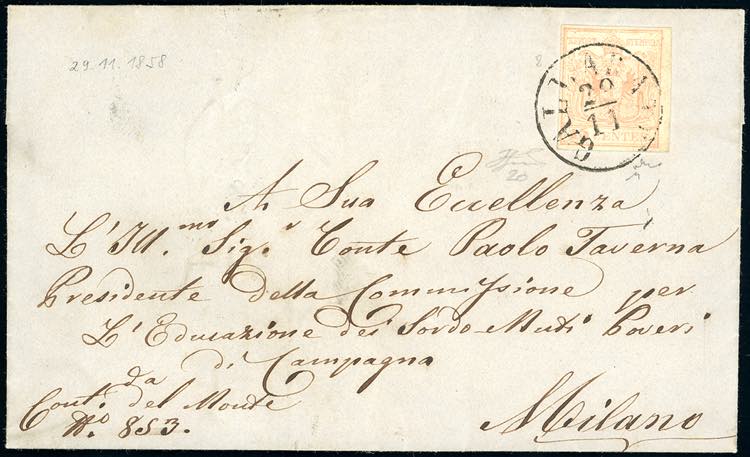 29.11.1858
8
GALLARATE
29
11
CENTES
20
A Sua Eccellenza
L'Ill.mo Sig.r Conte Paolo Taverna
Presidente della Commissione per
L'Educazione dei Sordo-Muti Poveri
di Campagna
da
Cont. del Monte
No. 853.
Milano